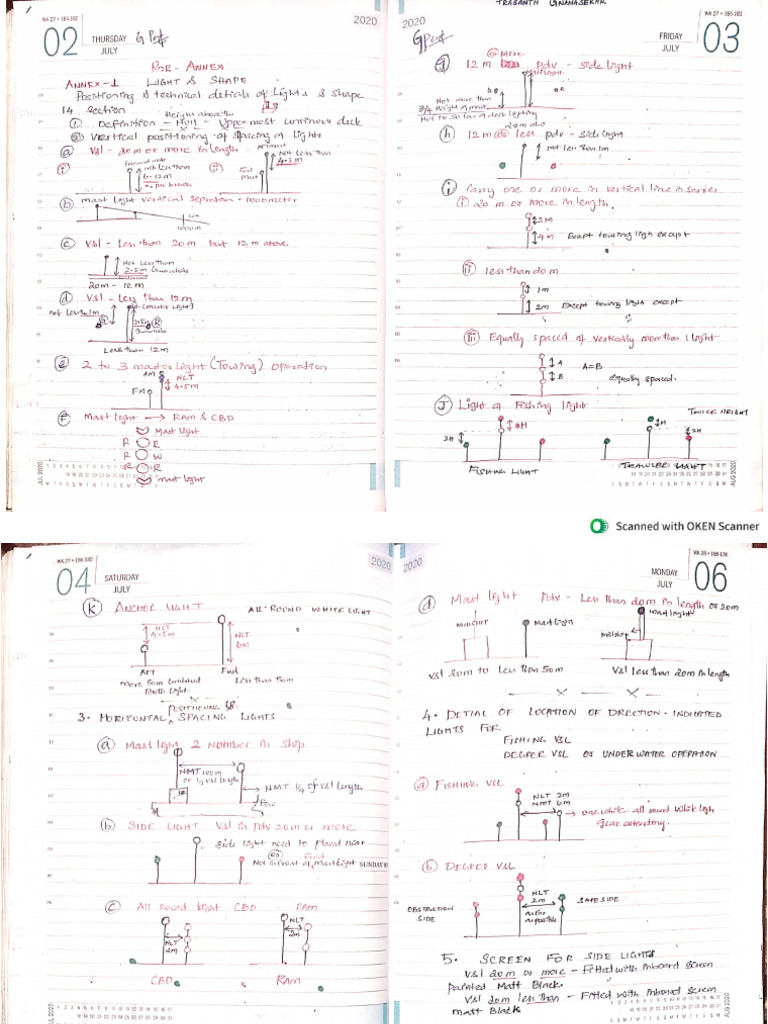 WK 27 • 184-182
2020
02 THURSDAY
JULY
G Perf
POR - ANNEX
ANNEX-1 LIGHT & SHAPE
Positioning & technical details of Lights & Shape
14 Section
Height above the
① Definition - Hull - Upper most continous deck
② Vertical positioning of spacing of Lights
ⓐ Vsl - 20m or more in length
ⓘ Not less than
6-12m
ⓘⓘ Not less than
4.5m
ⓑ Mast light vertical separation - 1000meter
1000m
ⓒ Vsl - less than 20m but 12m above
Not Less than
2.5m Gunwhale
20m - 12m
ⓓ Vsl - Less than 12m
(master light)
Less than 12m
ⓔ 2 to 3 master light (Towing) Operation
AM
NLT
4.5m
FM
ⓕ Mast light → RAM & CBD
Mast light
R R
R W
R R
Mast light
JUL 2020
PRASANTH GNANASEKAR
2020
WK 27 • 185-181
FRIDAY
JULY
03
G Perf
ⓖ 12m pdv - side light
@ More
Not more than
3/4 height of mast
Not to so low of deck lighting
ⓗ 12m @ less pdv - side light
Not less than 1m
ⓘ Carry one or more in vertical line in series
ⓘ 20m or more in length.
2M
4m Exapt towing ligh except
ⓘⓘ less than 20m
1m
2m Except towing light except
ⓘⓘⓘ Equally spaced of vertically more than 1 light
A
B
A=B
equally spaced.
ⓙ Light of Fishing light
TWICE HEIGHT
2H H H 2H
FISHING LIGHT TRAWLER LIGHT
AUG 2020
Scanned with OKEN Scanner
2020
04 SATURDAY
JULY
ⓚ ANCHOR LIGHT ALL ROUND WHITE LIGHT
NLT
4.5m
NLT
6m
AFT Fwd
more 50m combined Less than 50m
both light.
POSITIONING &
3. HORIZONTAL SPACING LIGHTS
ⓐ Mast light 2 number in ship
NMT 100m
or 1/2 vsl length
NMT 1/4 of vsl length
Bow
ⓑ SIDE LIGHT Vsl in pdv 20m or more
Side light need to placed near
Not infront of Mast light
SUNDAY
ⓒ All Round light CBD RAM
NLT
2m
NLT
2m
CBD RAM
2020
MONDAY
JULY
06
ⓓ Mast light pdv - Less than 20m in length or 20m
MIDSHIP Mast light
Mastlight
Midship
Vsl 20m to less than 50m Vsl less than 20m in length
4. DETIAL OF LOCATION OF DIRECTION - INDICATED
LIGHTS FOR
FISHING VSL
DEGPER VSL OR UNDER WATER OPERATION
ⓐ FISHING VSL
NLT 2m
NMT 6m
→ one white all round white ligh
gear extending.
ⓑ DEGPER VSL
OBSTRUCTION
SIDE
NLT
2m
as far
as possible
SAFE SIDE
5. SCREEN FOR SIDE LIGHTS
Vsl 20m or more - Fitted with Inboard screen
painted Matt Black.
Vsl 20m less than - Fitted with Inboard screen
matt Black
AUG 2020